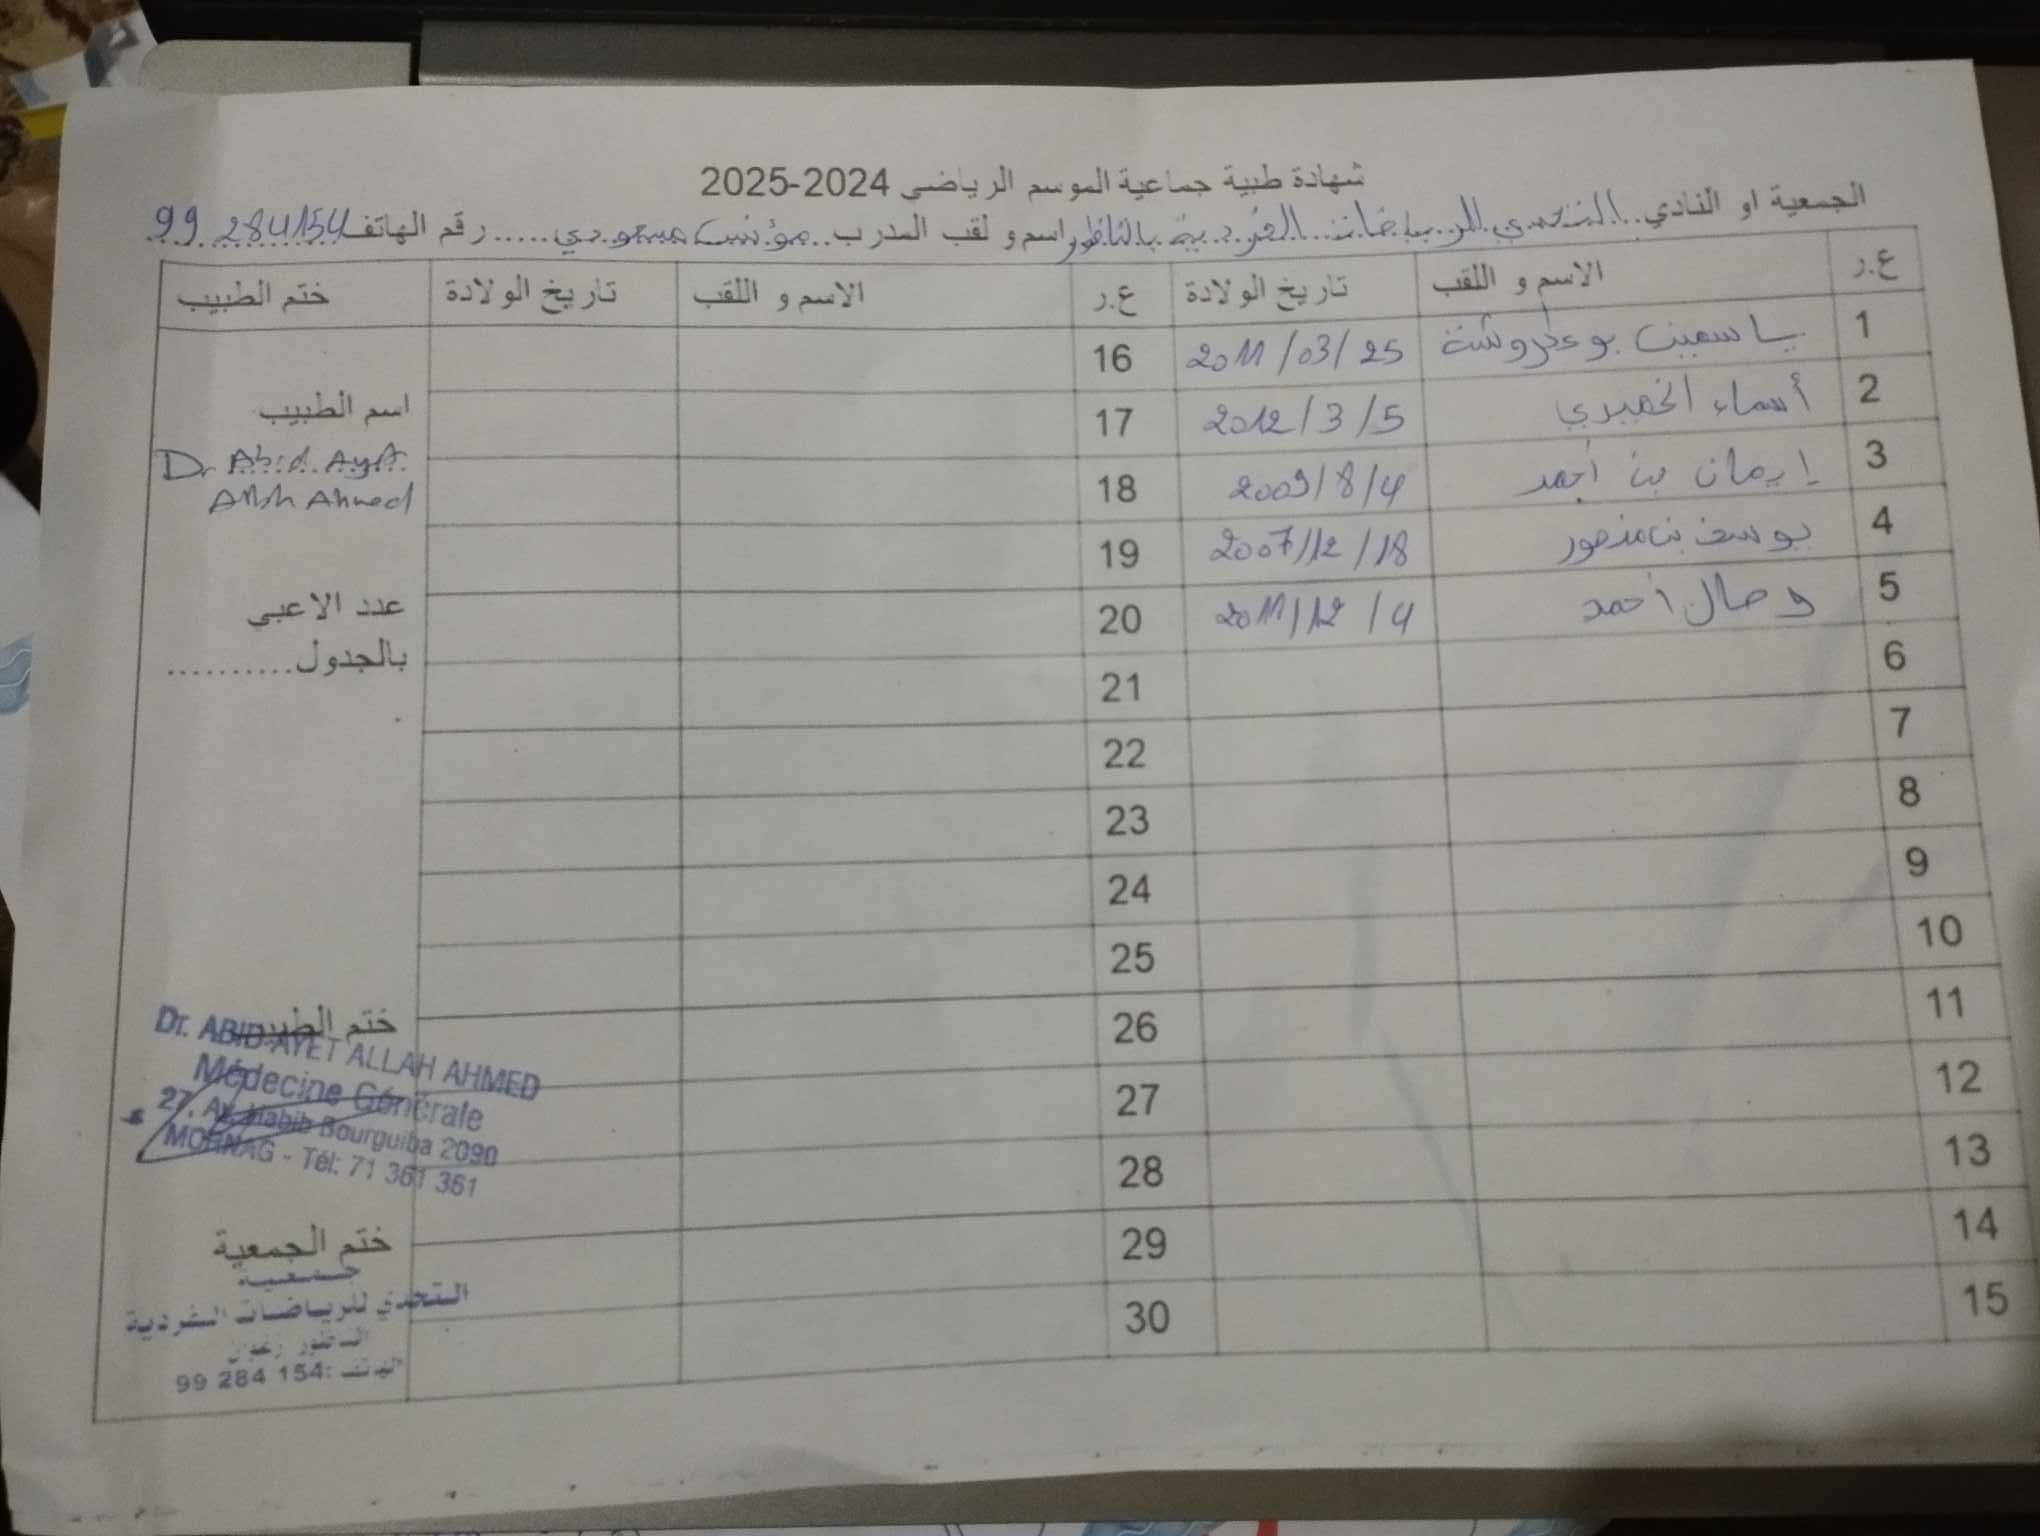 شهادة طبية جماعية الموسم الرياضي 2024-2025
الجمعية او النادي..التحدي للرياضات الفردية بالناظور اسم و لقب المدرب..مؤنس مسعودي.....رقم الهاتف 99 284154
ع.ر الاسم و اللقب تاريخ الولادة ع.ر الاسم و اللقب تاريخ الولادة ختم الطبيب
1 ياسمين بوعكروشة 25/03/2011 16
2 أسماء الخميري 5/3/2012 17
3 إيمان بن أحمد 4/8/2009 18
4 يوسف بن منصور 18/12/2007 19
5 وصال أحمد 4/12/2011 20
6 21
7 22
8 23
9 24
10 25
11 26
12 27
13 28
14 29
15 30
اسم الطبيب
Dr Abid Ayet
Allah Ahmed
عدد الاعبي
بالجدول..........
ختم الطبيب
Dr. ABID AYET ALLAH AHMED
Médecine Générale
27, Av. Habib Bourguiba 2090
MORNAG - Tél: 71 361 361
ختم الجمعية
جمعية
التحدي للرياضات الفردية
الناظور زغوان
الهاتف: 99 284 154